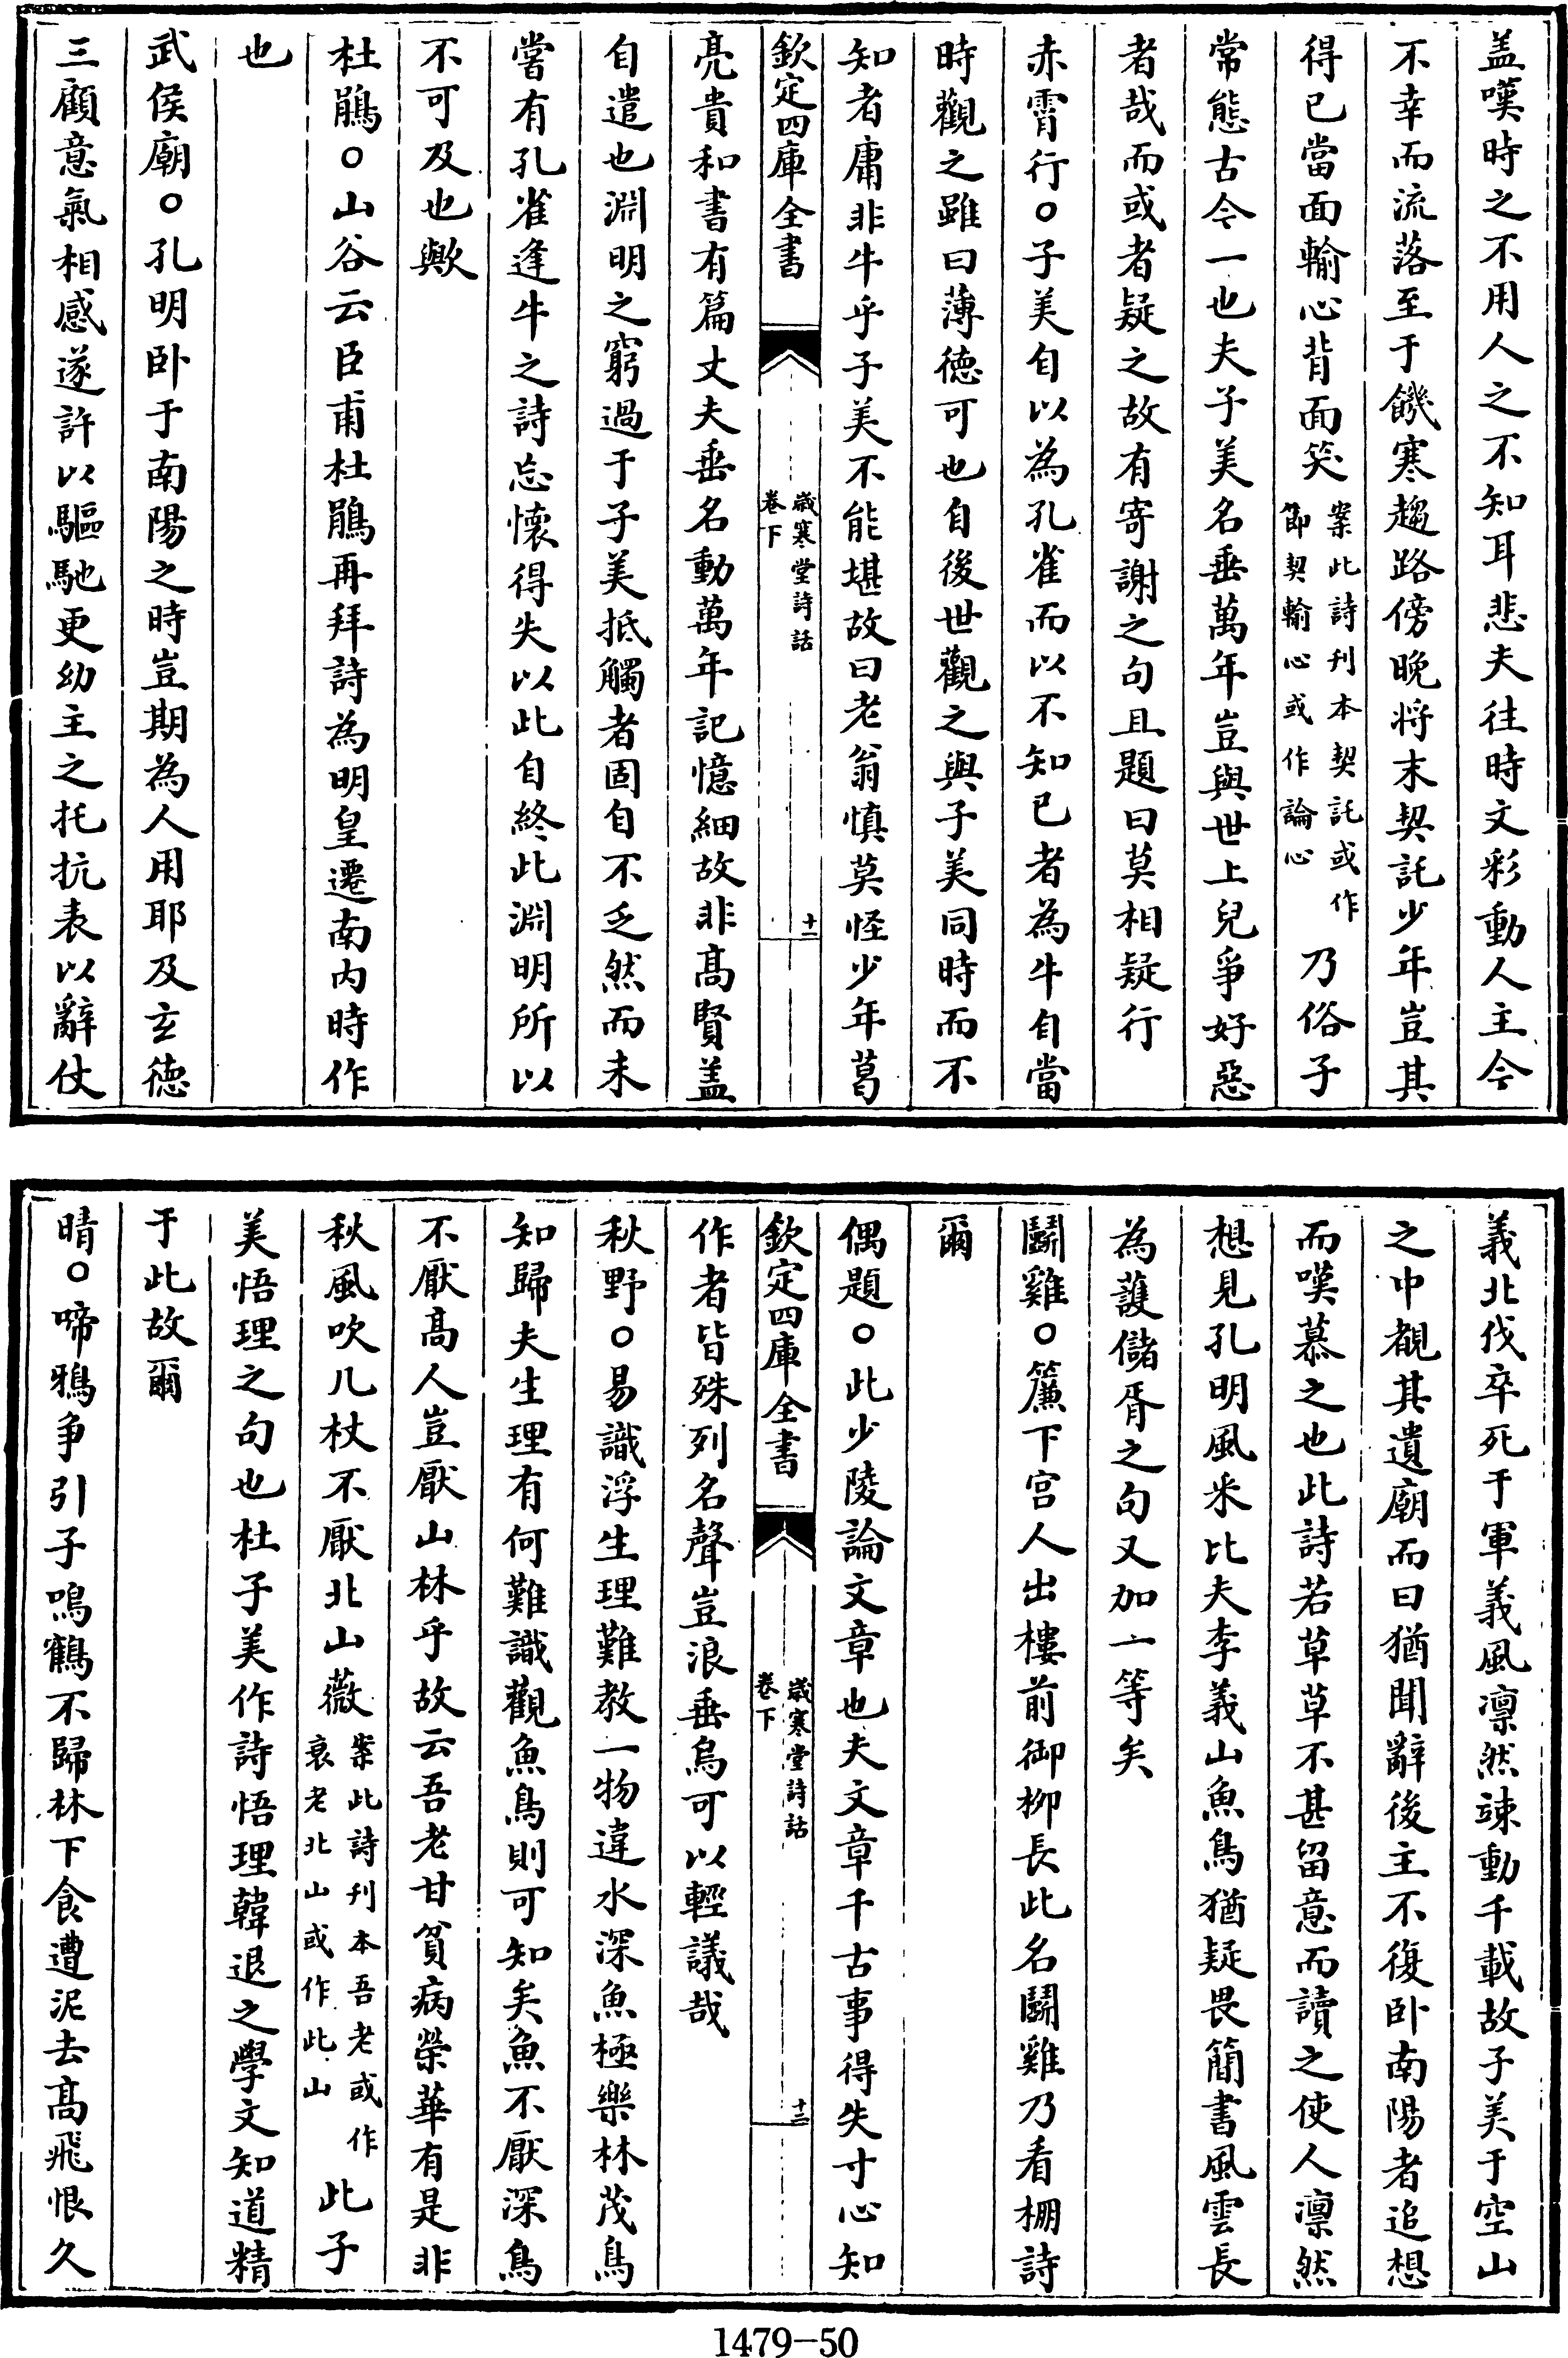 盖嘆時之不用人之不知耳悲夫往時文彩動人主今
不幸而流落至于饑寒趨路傍晚将末契託少年豈其
得已當面輸心背面笑案此詩刋本契託或作節契輸心或作論心乃俗子
常態古今一也夫子美名垂萬年豈與世上兒爭好惡
者哉而或者疑之故有寄謝之句且題曰莫相疑行
赤霄行○子美自以為孔雀而以不知已者為牛自當
時觀之雖曰薄徳可也自後世觀之與子美同時而不
知者庸非牛乎子美不能堪故曰老翁慎莫怪少年葛
欽定四庫全書
歳寒堂詩話
卷下
十二
亮貴和書有篇丈夫垂名動萬年記憶細故非髙賢盖
自遣也淵明之窮過于子美抵觸者固自不乏然而未
嘗有孔雀逢牛之詩忘懷得失以此自終此淵明所以
不可及也歟
杜鵑○山谷云臣甫杜鵑再拜詩為明皇遷南内時作
也
武侯廟○孔明卧于南陽之時豈期為人用耶及玄徳
三顧意氣相感遂許以驅馳更幼主之托抗表以辭仗
義北伐卒死于軍義風凛然竦動千載故子美于空山
之中覩其遺廟而曰猶聞辭後主不復卧南陽者追想
而嘆慕之也此詩若草草不甚留意而讀之使人凛然
想見孔明風采比夫李義山魚鳥猶疑畏簡書風雲長
為䕶儲胥之句又加一等矣
鬭雞○簾下宫人出樓前御柳長此名鬭雞乃看棚詩
爾
偶題○此少陵論文章也夫文章千古事得失寸心知
欽定四庫全書
歳寒堂詩話
卷下
十三
作者皆殊列名聲豈浪垂烏可以輕議哉
秋野○易識浮生理難教一物違水深魚極樂林茂鳥
知歸夫生理有何難識觀魚鳥則可知矣魚不厭深鳥
不厭髙人豈厭山林乎故云吾老甘貧病榮華有是非
秋風吹几杖不厭北山薇案此詩刋本吾老或作衰老北山或作此山此子
美悟理之句也杜子美作詩悟理韓退之學文知道精
于此故爾
晴○啼鴉争引子鳴鶴不歸林下食遭泥去髙飛恨久
1479-50